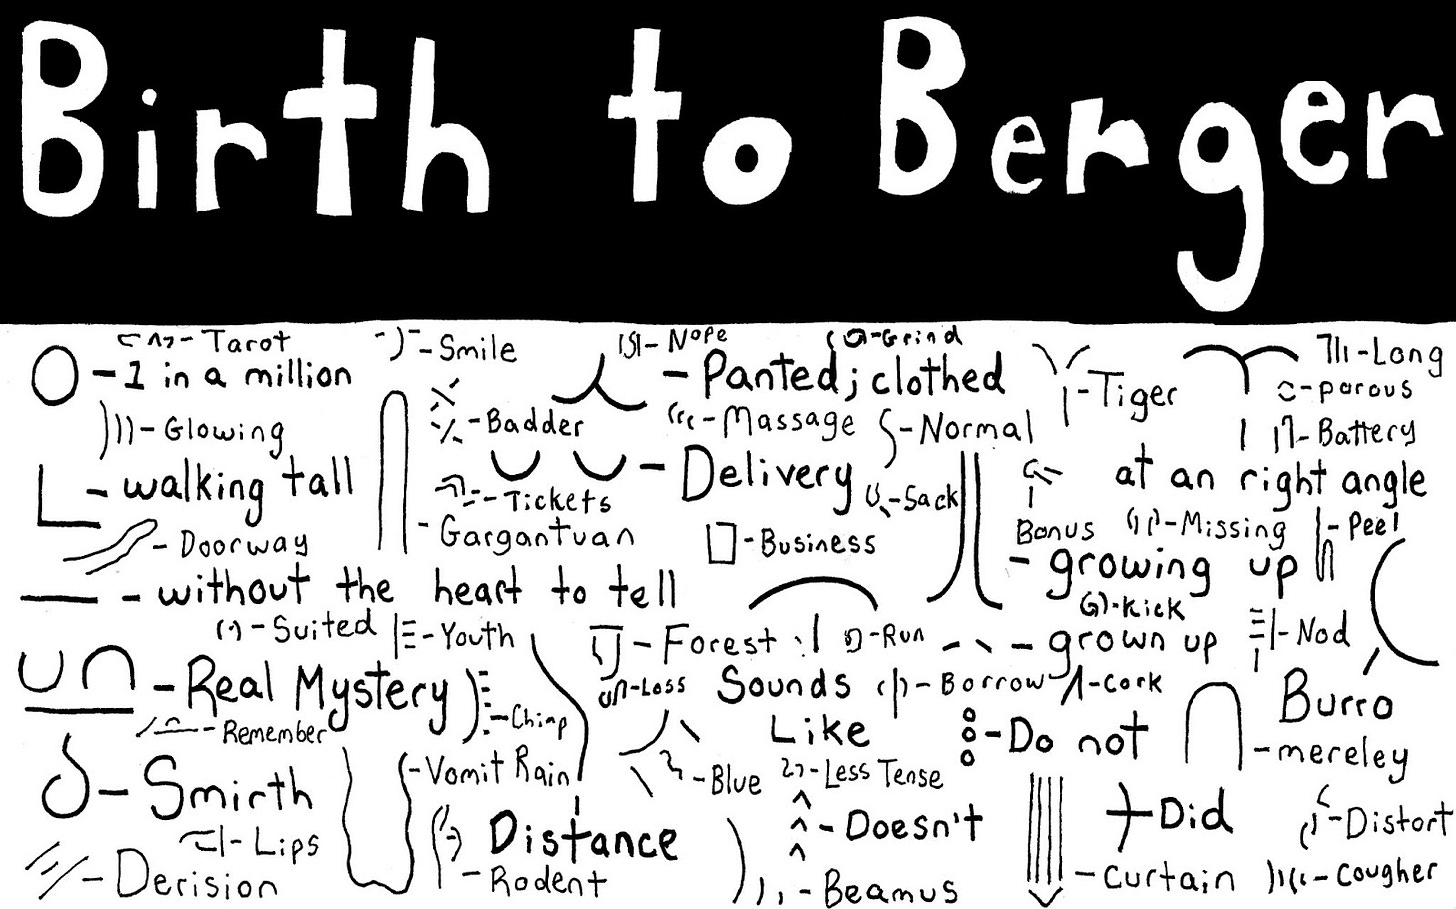 Birth to Berger
- Tarot
- Smile
- Nope
- Grind
- 1 in a million
- Panted; clothed
- Tiger
- Long
- porous
- Glowing
- Badder
- Massage
- Normal
- Battery
- walking tall
- Delivery
at an right angle
- Tickets
- Sack
- Doorway
- Gargantuan
- Business
Bonus
- Missing
- Peel
- without the heart to tell
- growing up
- Kick
- Suited
- Youth
- Forest
- Run
- grown up
- Nod
- Real Mystery
- Loss
Sounds
Like
- Borrow
- Cork
Burro
- Remember
- Chimp
- Do not
- mereley
- Smirth
- Vomit Rain
- Blue
- Less Tense
- Lips
Distance
- Doesn't
- Did
- Distort
- Derision
- Rodent
- Beamus
- Curtain
- Cougher